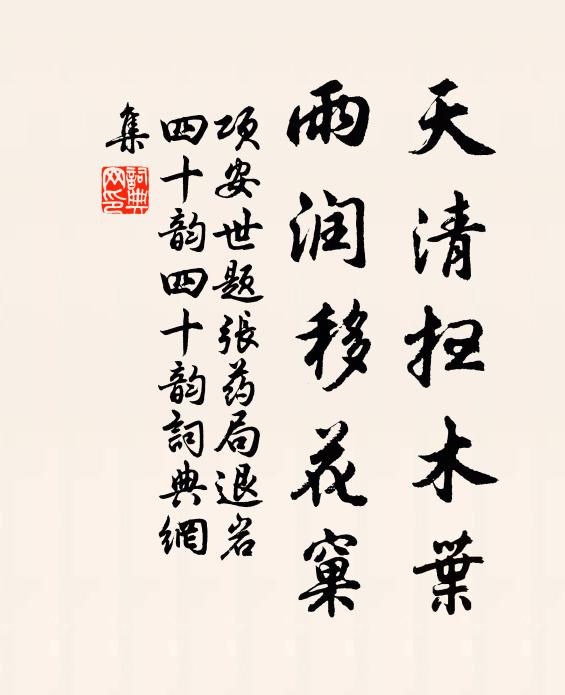 天清扫木葉
雨润移花窠
项安世题張药局退岩
四十韵四十韵詞典網
集
詞典
网印